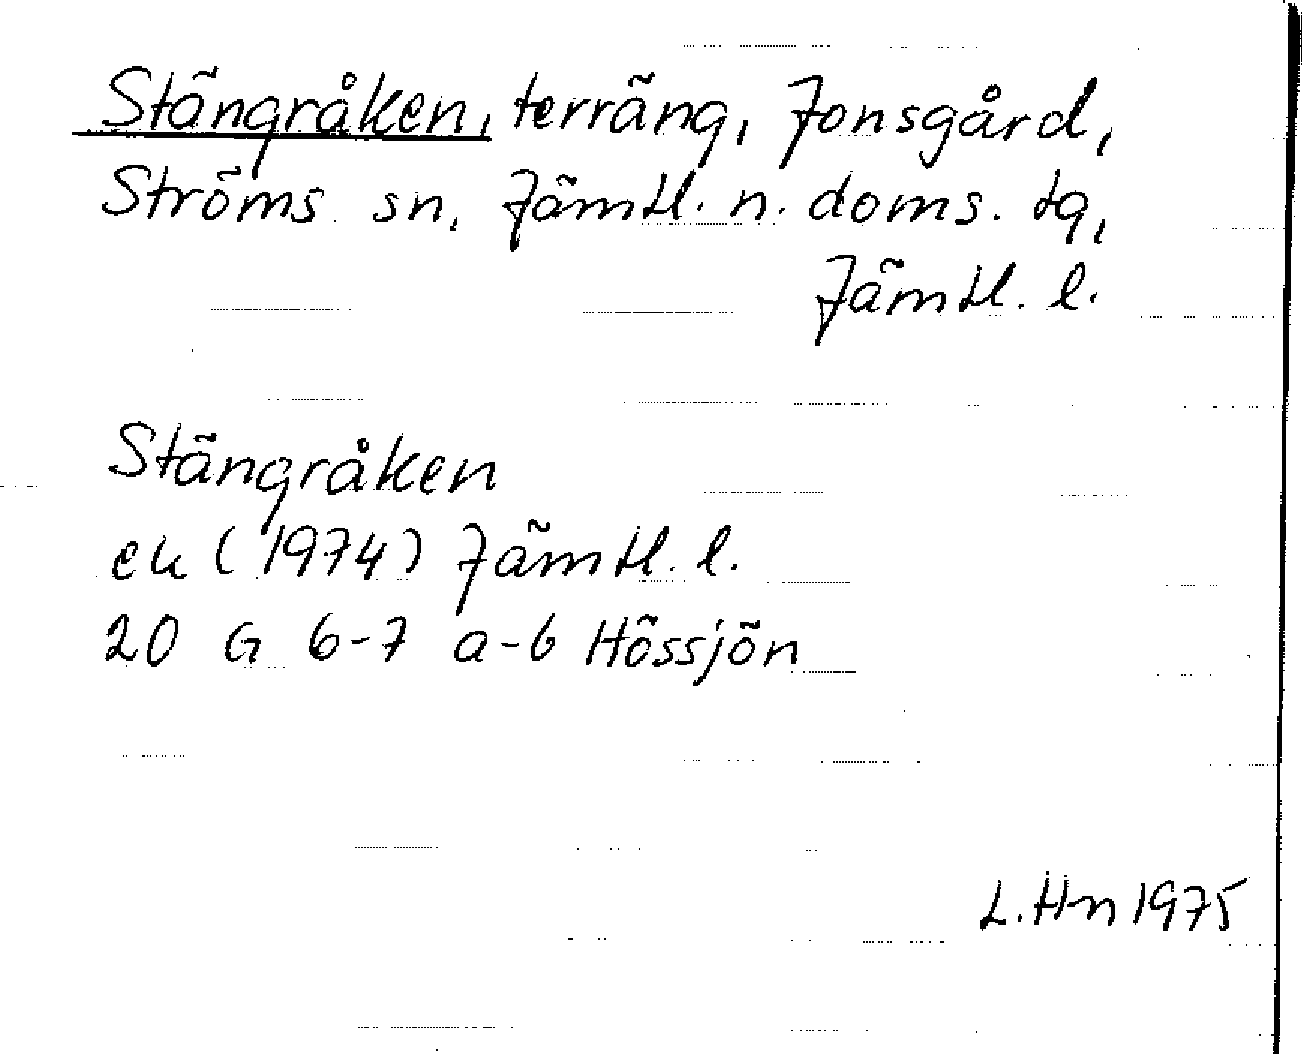 Stängråken, terräng, Jonsgård,
Ströms sn, Jämtl. n. doms. tg,
Jämtl. l.
Stängråken
ek (1974) Jämtl. l.
20 G 6-7 a-b Hössjön
L. Hn 1975